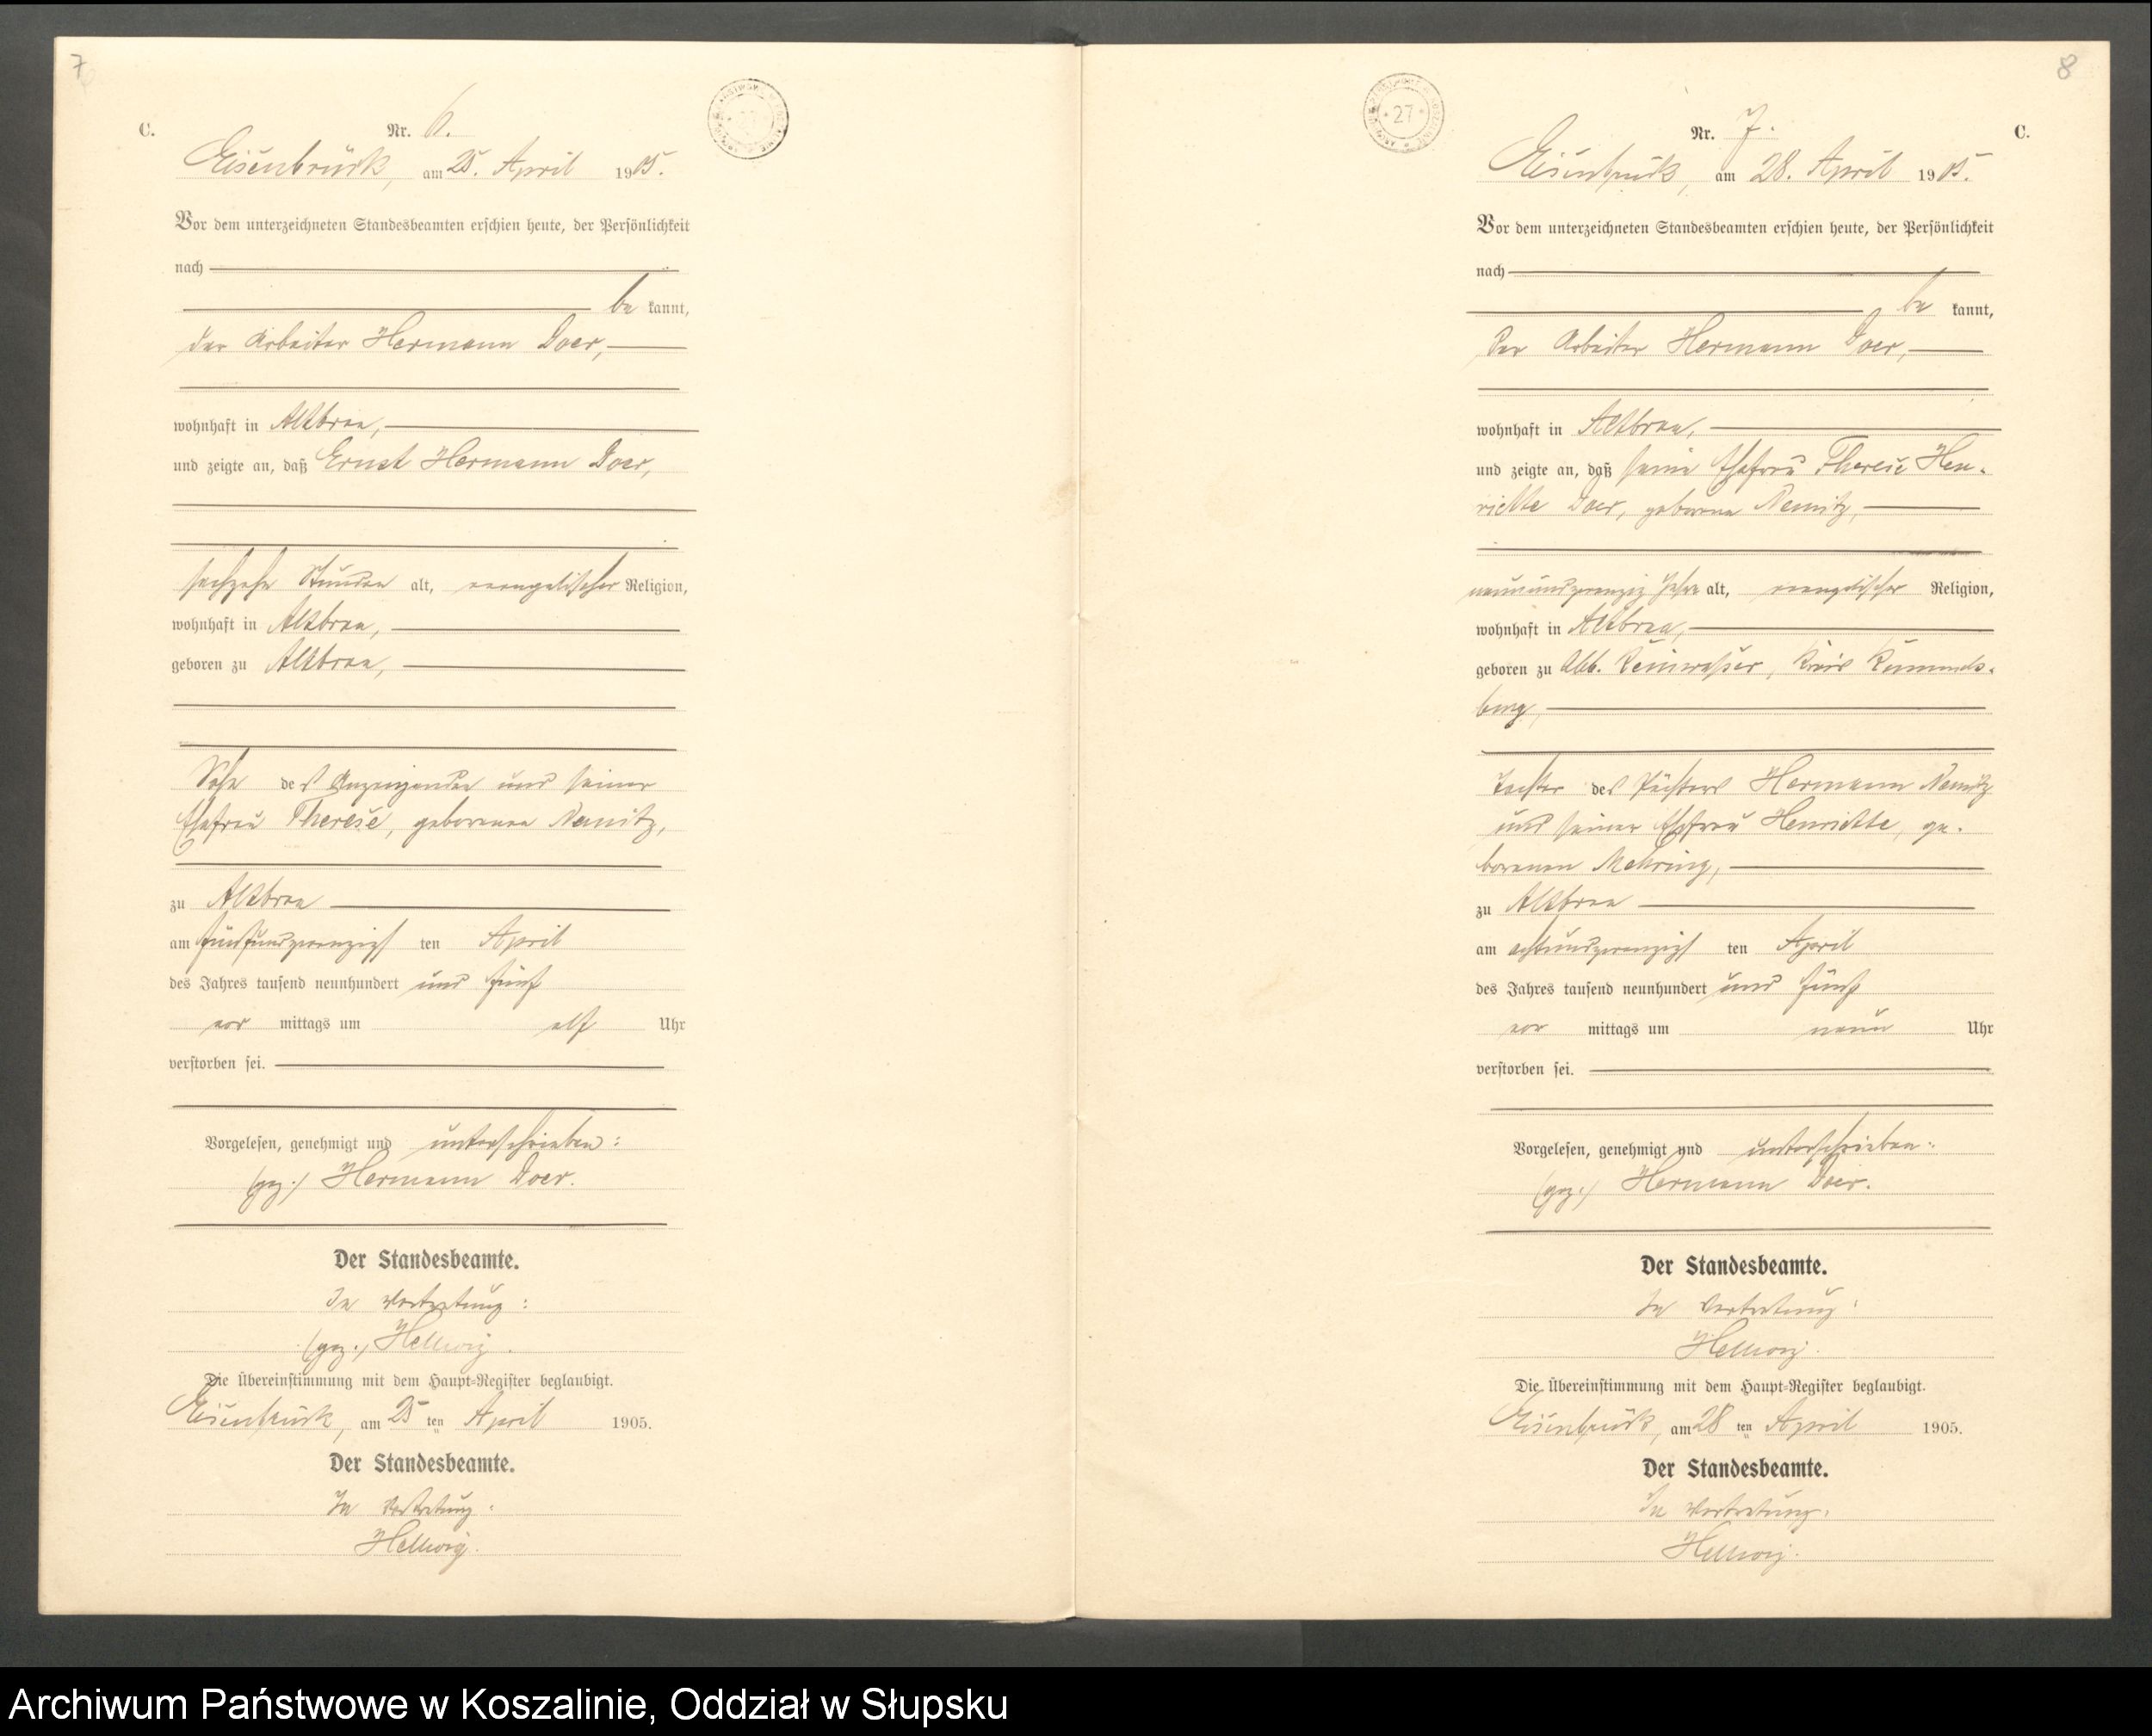 7
C.
Nr. 6.
Eisenbrück, am 25. April 1905.
Vor dem unterzeichneten Standesbeamten erschien heute, der Persönlichkeit
nach
be kannt,
der Arbeiter Hermann Doer,
wohnhaft in Altbraa,
und zeigte an, daß Ernst Hermann Doer,
sechzehn Stunden alt, evangelischer Religion,
wohnhaft in Altbraa,
geboren zu Altbraa,
Sohn des Anzeigenden und seiner
Ehefrau Therese, geborenen Nemitz,
zu Altbraa
am fünfundzwanzigsten April
des Jahres tausend neunhundert und fünf
vor mittags um elf Uhr
verstorben sei.
Vorgelesen, genehmigt und unterschrieben:
(gez.) Hermann Doer.
Der Standesbeamte.
In Vertretung:
(gez.) Hellwig.
Die Übereinstimmung mit dem Haupt-Register beglaubigt.
Eisenbrück, am 25 ten April 1905.
Der Standesbeamte.
In Vertretung:
Hellwig.
8
27
Nr. 7. C.
Eisenbrück, am 28. April 1905.
Vor dem unterzeichneten Standesbeamten erschien heute, der Persönlichkeit
nach
be kannt,
Der Arbeiter Hermann Doer,
wohnhaft in Altbraa,
und zeigte an, daß seine Ehefrau Therese Hen-
riette Doer, geborene Nemitz,
neunundzwanzig Jahre alt, evangelischer Religion,
wohnhaft in Altbraa,
geboren zu Abb. Reinwasser, Kreis Rummels-
burg,
Tochter des Pächters Hermann Nemitz
und seiner Ehefrau Henriette, ge-
borenen Mehring,
zu Altbraa
am achtundzwanzigsten April
des Jahres tausend neunhundert und fünf
vor mittags um neun Uhr
verstorben sei.
Vorgelesen, genehmigt und unterschrieben:
(gez.) Hermann Doer.
Der Standesbeamte.
In Vertretung:
Hellwig.
Die Übereinstimmung mit dem Haupt-Register beglaubigt.
Eisenbrück, am 28 ten April 1905.
Der Standesbeamte.
In Vertretung:
Hellwig.
Archiwum Państwowe w Koszalinie, Oddział w Słupsku